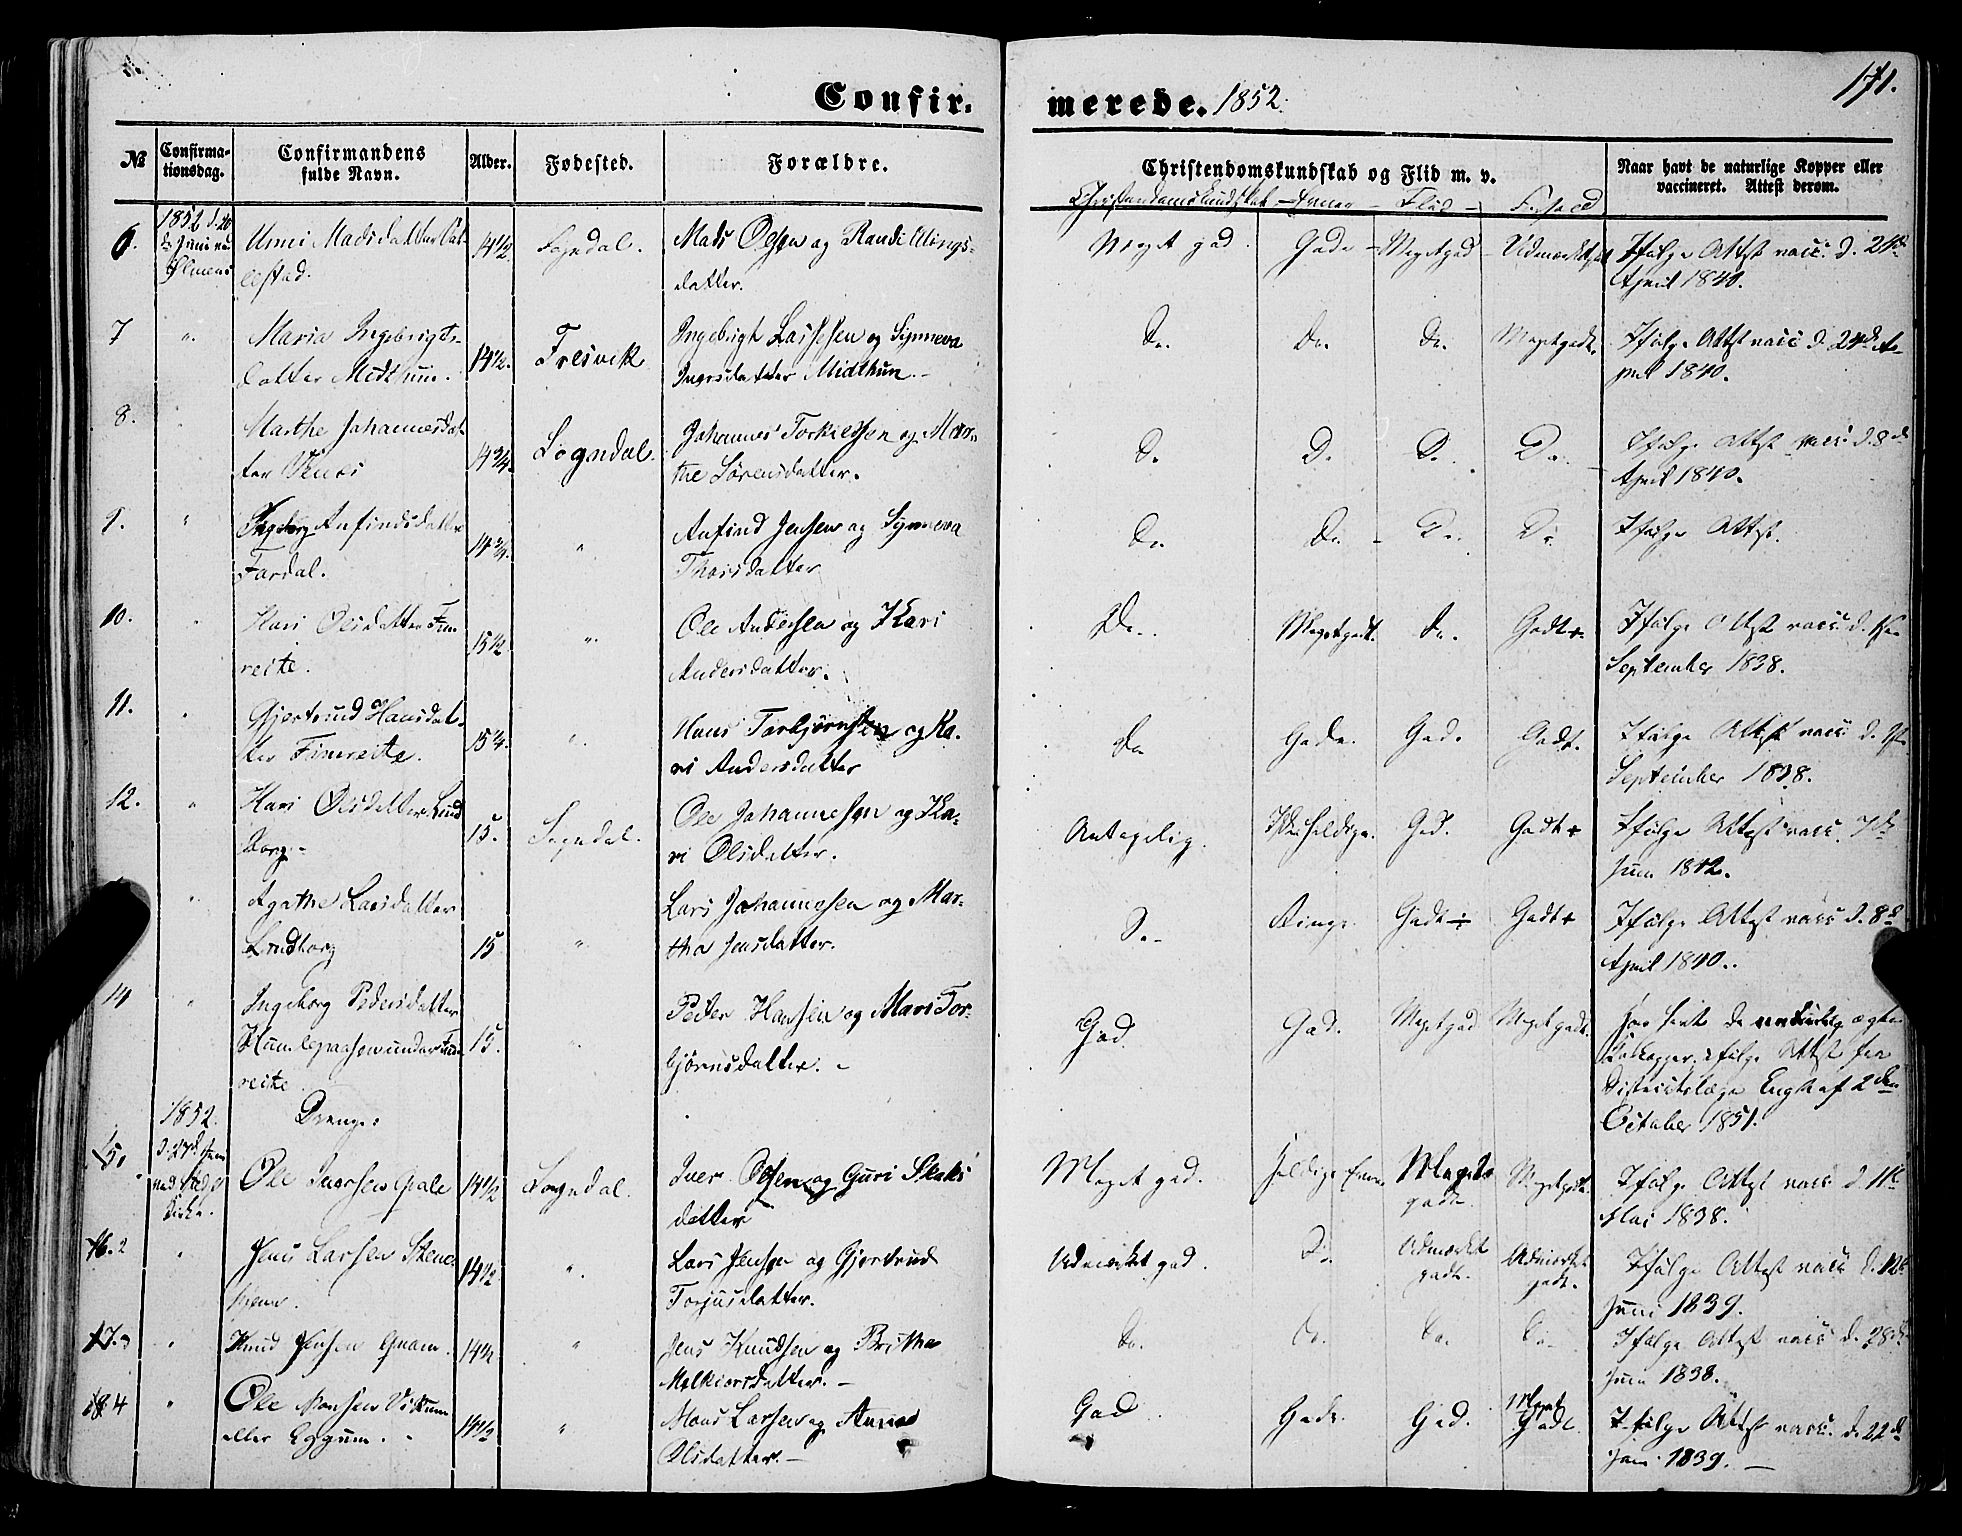 171.
Confir.
merede. 1852.
№
Confirma-
tionsdag.
Confirmandens
fulde Navn.
Alder.
Fødested.
Forældre.
Christendomskundskab og Flid m. v.
Naar havt de naturlige Kopper eller
vaccineret. Attest derom.
Christendomskundskab - Evner - Flid -
6. 1852 d. 20
Unni Madsdatter
lestad.
14½ Sogndal.
Mads Olsen og Randi
datter.
Meget god. Gode - Meget god -
Ifølge Attest vacc. d. 24de
April 1840.
7 " Maria Ingebrigts-
datter Midthun.
14½. Fresvik
Ingebrigt Lassesen og Synneva
Iversdatter Midthun. -
Do. Do. Do. Meget godt.
Ifølge Attst vacc d. 24de A-
pril 1840.
8. " Marthe Johannesdat-
ter
14¾. Sogndal.
Johannes Torkielsen og Mar-
the Sørensdatter.
Do Do Do. Do.
Ifølge Attst vacc. d. 8de
April 1840.
9. " Ingeborg Anfindsdatter
Fardal.
14¾. "
Anfind Jensen og Synneva
Thorsdatter
Do Do - Do. Do.
Ifølge Attst.
10. " Kari Olsdatter Fim-
reite.
15½ "
Ole Andersen og Kari
Andersdatter.
Do. Meget godt. Do. Godt
Ifølge Attst vacc. d.
September 1838.
11. " Gjertrud Hansdat-
ter Fimreite.
15¼. "
Hans Torbjørnsen og Ka-
ri Andersdatter
Do Gode. God. Godt.
Ifølge Attest vacc. d.
September 1838.
12. " Kari Olsdatter Lund-
borg -
15. Sogndal.
Ole Johannesen og Ka-
ri Olsdatter.
Antagelig. God. Godt
Ifølge Attest vacc. 7de
Juni 1842.
" Agathe Larsdatter
Lundborg
15 "
Lars Johannesen og Mar-
tha Jensdatter.
Do - Ringe. Godt Godt
Ifølge Attest vacc d. 8de
April 1840.
14 " Ingeborg Pedersdatter
reite
15. "
Peder Hansen og Mari Tor-
bjørnsdatter. -
God. God. Meget god Meget godt.
ægte
ifølge Attst fra
Districtslæge Engh af 2den
October 1851.
1852. Drenge:
15.
Ole Iversen Qvale
14½ Sogndal.
Iver Olsen og Guri
datter
Meget god. Heldige Evner Meget
godt. Meget godt.
Ifølge Attst vacc d. 11te
Mai 1838.
16. 2 " Jens Larsen Stene-
14½ "
Lars Jensen og Gjertrud
Torjusdatter.
Udmærket god. Do. Udmærket
godt. Udmærket
godt.
Ifølge Attest vacc d. 12te
Juni 1839.
17. 3 " Knud Jensen Qvam.
14½ "
Jens Knudsen og Britha
Melkiorsdatter. -
Do. Do. Do. Do.
Ifølge Attest vacc. d. 28de
Juni 1838.
18 4 " Ole Monsen
eller Eggum.
14½ "
Mons Larsen og Anna
Olsdatter. -
God Gode. God. Meget
Godt.
Ifølge Attst vacc. d. 22de
Juni 1839. -